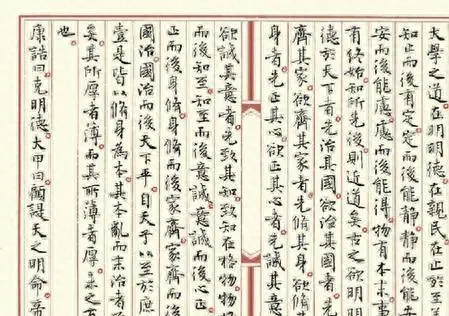 大學之道在明明德在親民在止於至
知止而後有定定而後能靜靜而後能安
安而後能慮慮而後能得物有本末事
有終始知所先後則近道矣古之欲明明
德於天下者先治其國欲治其國者先
齊其家欲齊其家者先脩其身欲脩其
身者先正其心欲正其心者先誠其意
欲誠其意者先致其知致知在格物物
而後知至知至而後意誠意誠而後心正
正而後身脩身脩而後家齊家齊而後
國治國治而後天下平自天子以至於庶
壹是皆以脩身為本其本亂而末治者
矣其所厚者薄而其所薄者厚未之有
也
康誥曰克明德大甲曰顧諟天之明命帝